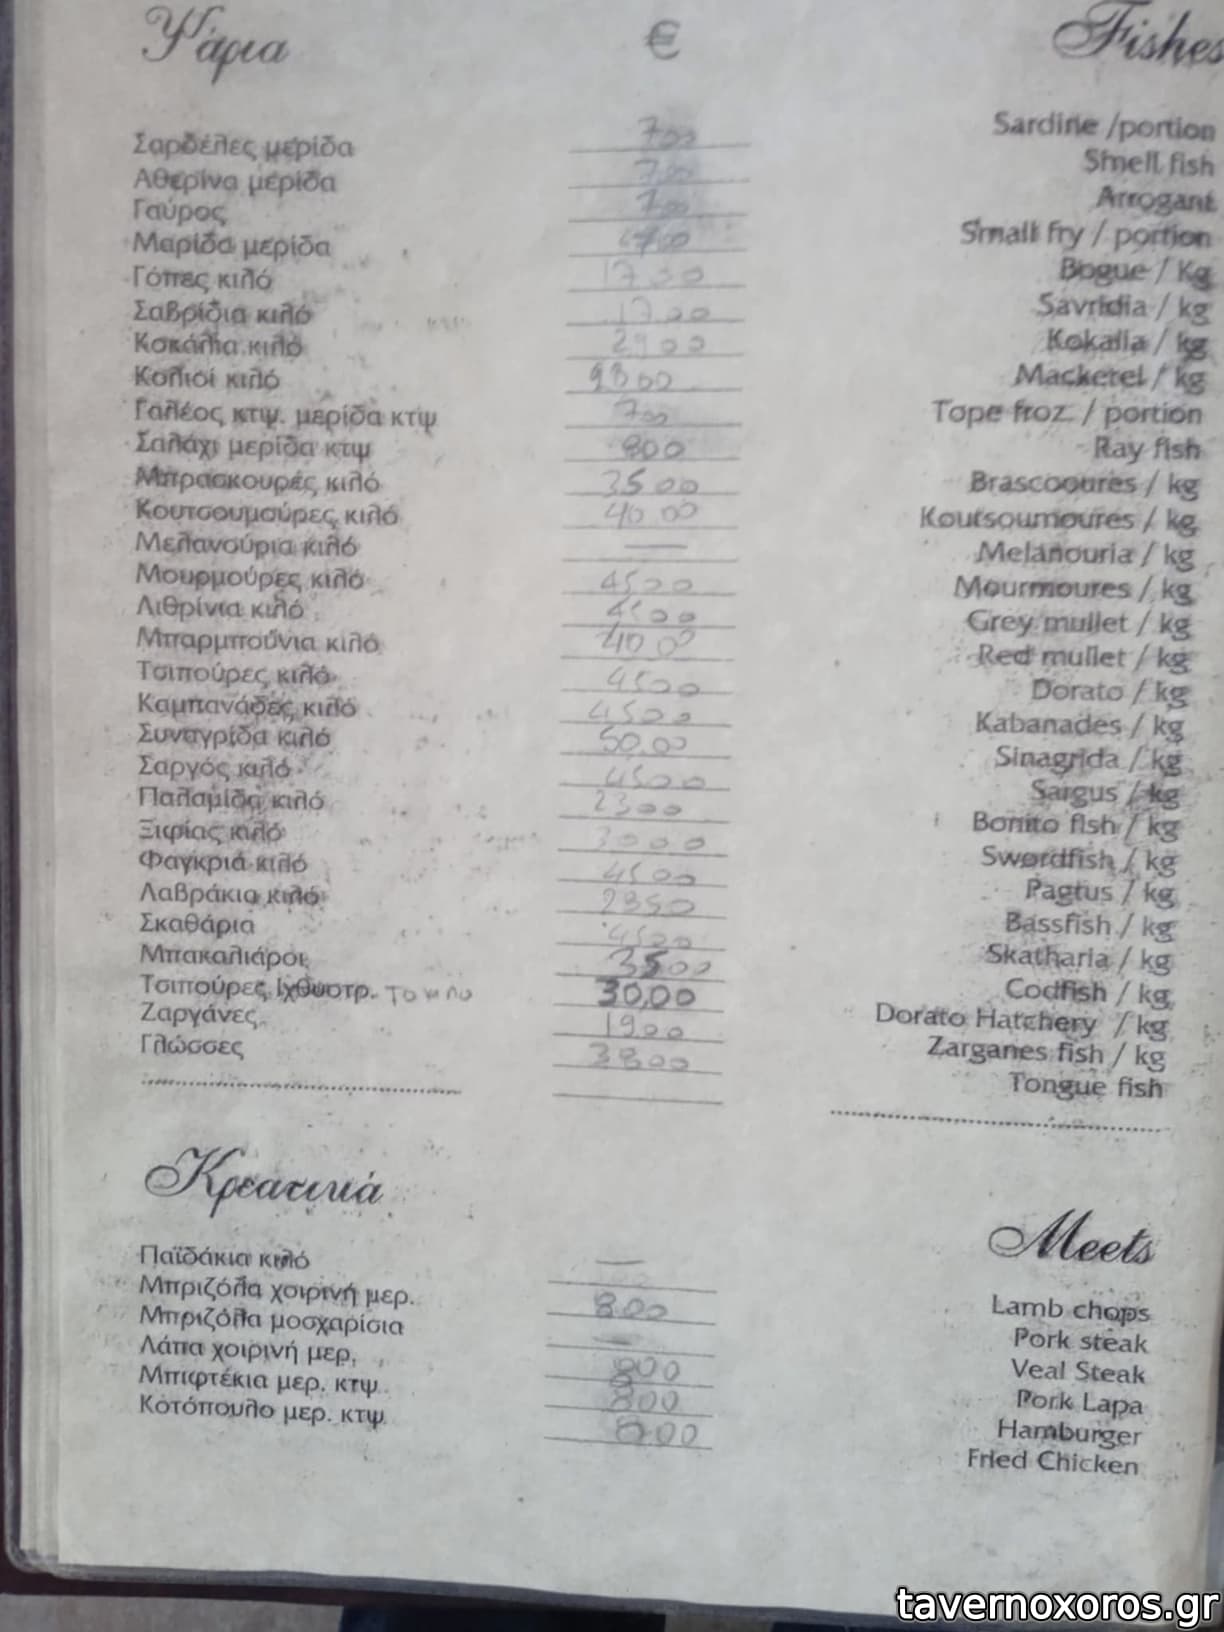 Ψάρια € Fishes
Σαρδέλες μερίδα 7 00 Sardine /portion
Αθερίνα μερίδα 7 00 Smell fish
Γαύρος 7 00 Arrogant
Μαρίδα μερίδα 7 00 Small fry / portion
Γόπες κιλό 17 00 Bogue / Kg
Σαβρίδια κιλό 17 00 Savridia / kg
Κοκάλια κιλό 29 00 Kokalia / kg
Κολιοί κιλό Mackerel / kg
Γαλέος κτψ. μερίδα κτψ 7 00 Tope froz. / portion
Σαλάχι μερίδα κτψ 800 Ray fish
Μπρασκουρές κιλό 35 00 Brascooures / kg
Κουτσουμούρες κιλό 40 00 Koutsoumoures / kg
Μελανούρια κιλό — Melanouria / kg
Μουρμούρες κιλό 4500 Mourmoures / kg
Λιθρίνια κιλό 4500 Grey mullet / kg
Μπαρμπούνια κιλό 40 00 Red mullet / kg
Τσιπούρες κιλό 4500 Dorato / kg
Καμπανάδες κιλό 4500 Kabanades / kg
Συναγρίδα κιλό 50.00 Sinagrida / kg
Σαργός κιλό 4500 Sargus / kg
Παλαμίδα κιλό 2300 Bonito fish / kg
Ξιφίας κιλό 3000 Swordfish / kg
Φαγκριά κιλό 4500 Pagtus / kg
Λαβράκια κιλό Bassfish / kg
Σκαθάρια 4500 Skatharia / kg
Μπακαλιάροι 3500 Codfish / kg
Τσιπούρες Ιχθυοτρ. το κιλο 30,00 Dorato Hatchery / kg
Ζαργάνες 1900 Zarganes fish / kg
Γλώσσες 3800 Tongue fish
Κρεατικά Meets
Παϊδάκια κιλό — Lamb chops
Μπριζόλα χοιρινή μερ. 8.00 Pork steak
Μπριζόλα μοσχαρίσια — Veal Steak
Λάπα χοιρινή μερ. 800 Pork Lapa
Μπιφτέκια μερ. κτψ. 800 Hamburger
Κοτόπουλο μερ. κτψ 800 Fried Chicken
tavernoxoros.gr